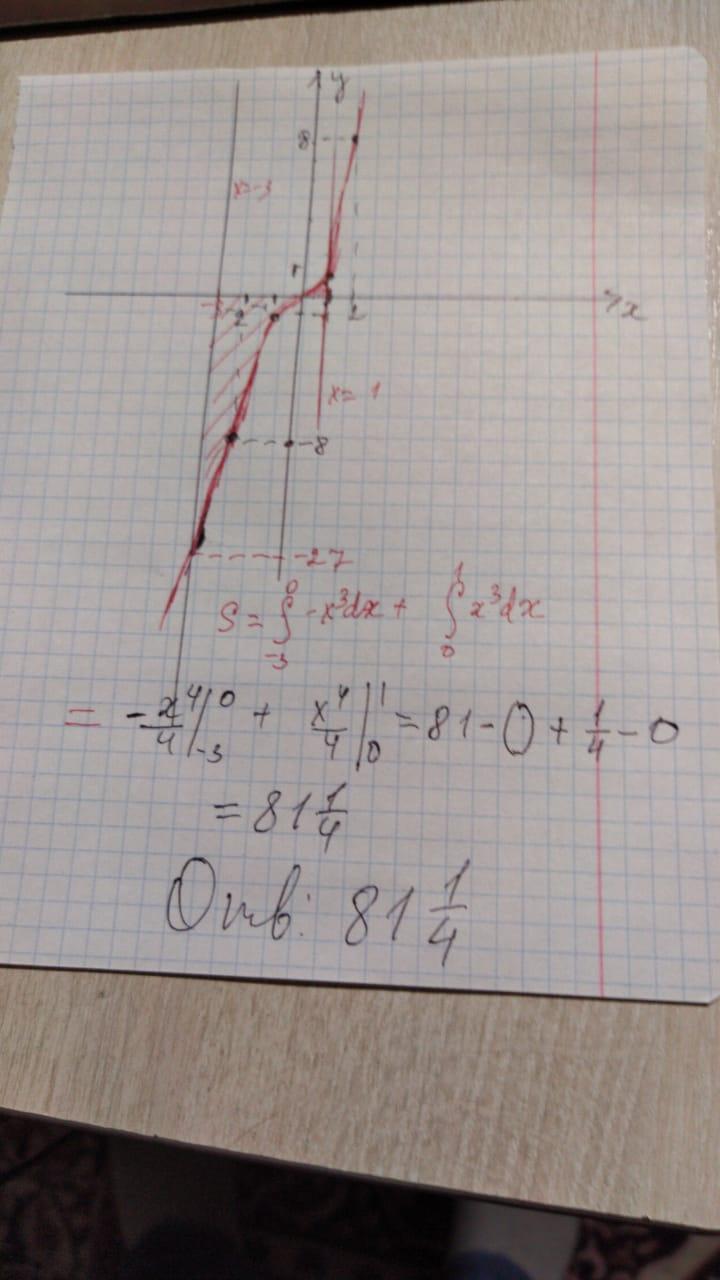 y
8
x=-3
1
-3 -2 -1 1 2 x
x=1
-8
-27
S = ∫₋₃⁰ -x³dx + ∫₀¹ x³dx
= -x⁴/4 |₋₃⁰ + x⁴/4 |₀¹ = 81 - 0 + 1/4 - 0
= 81 1/4
Отв: 81 1/4